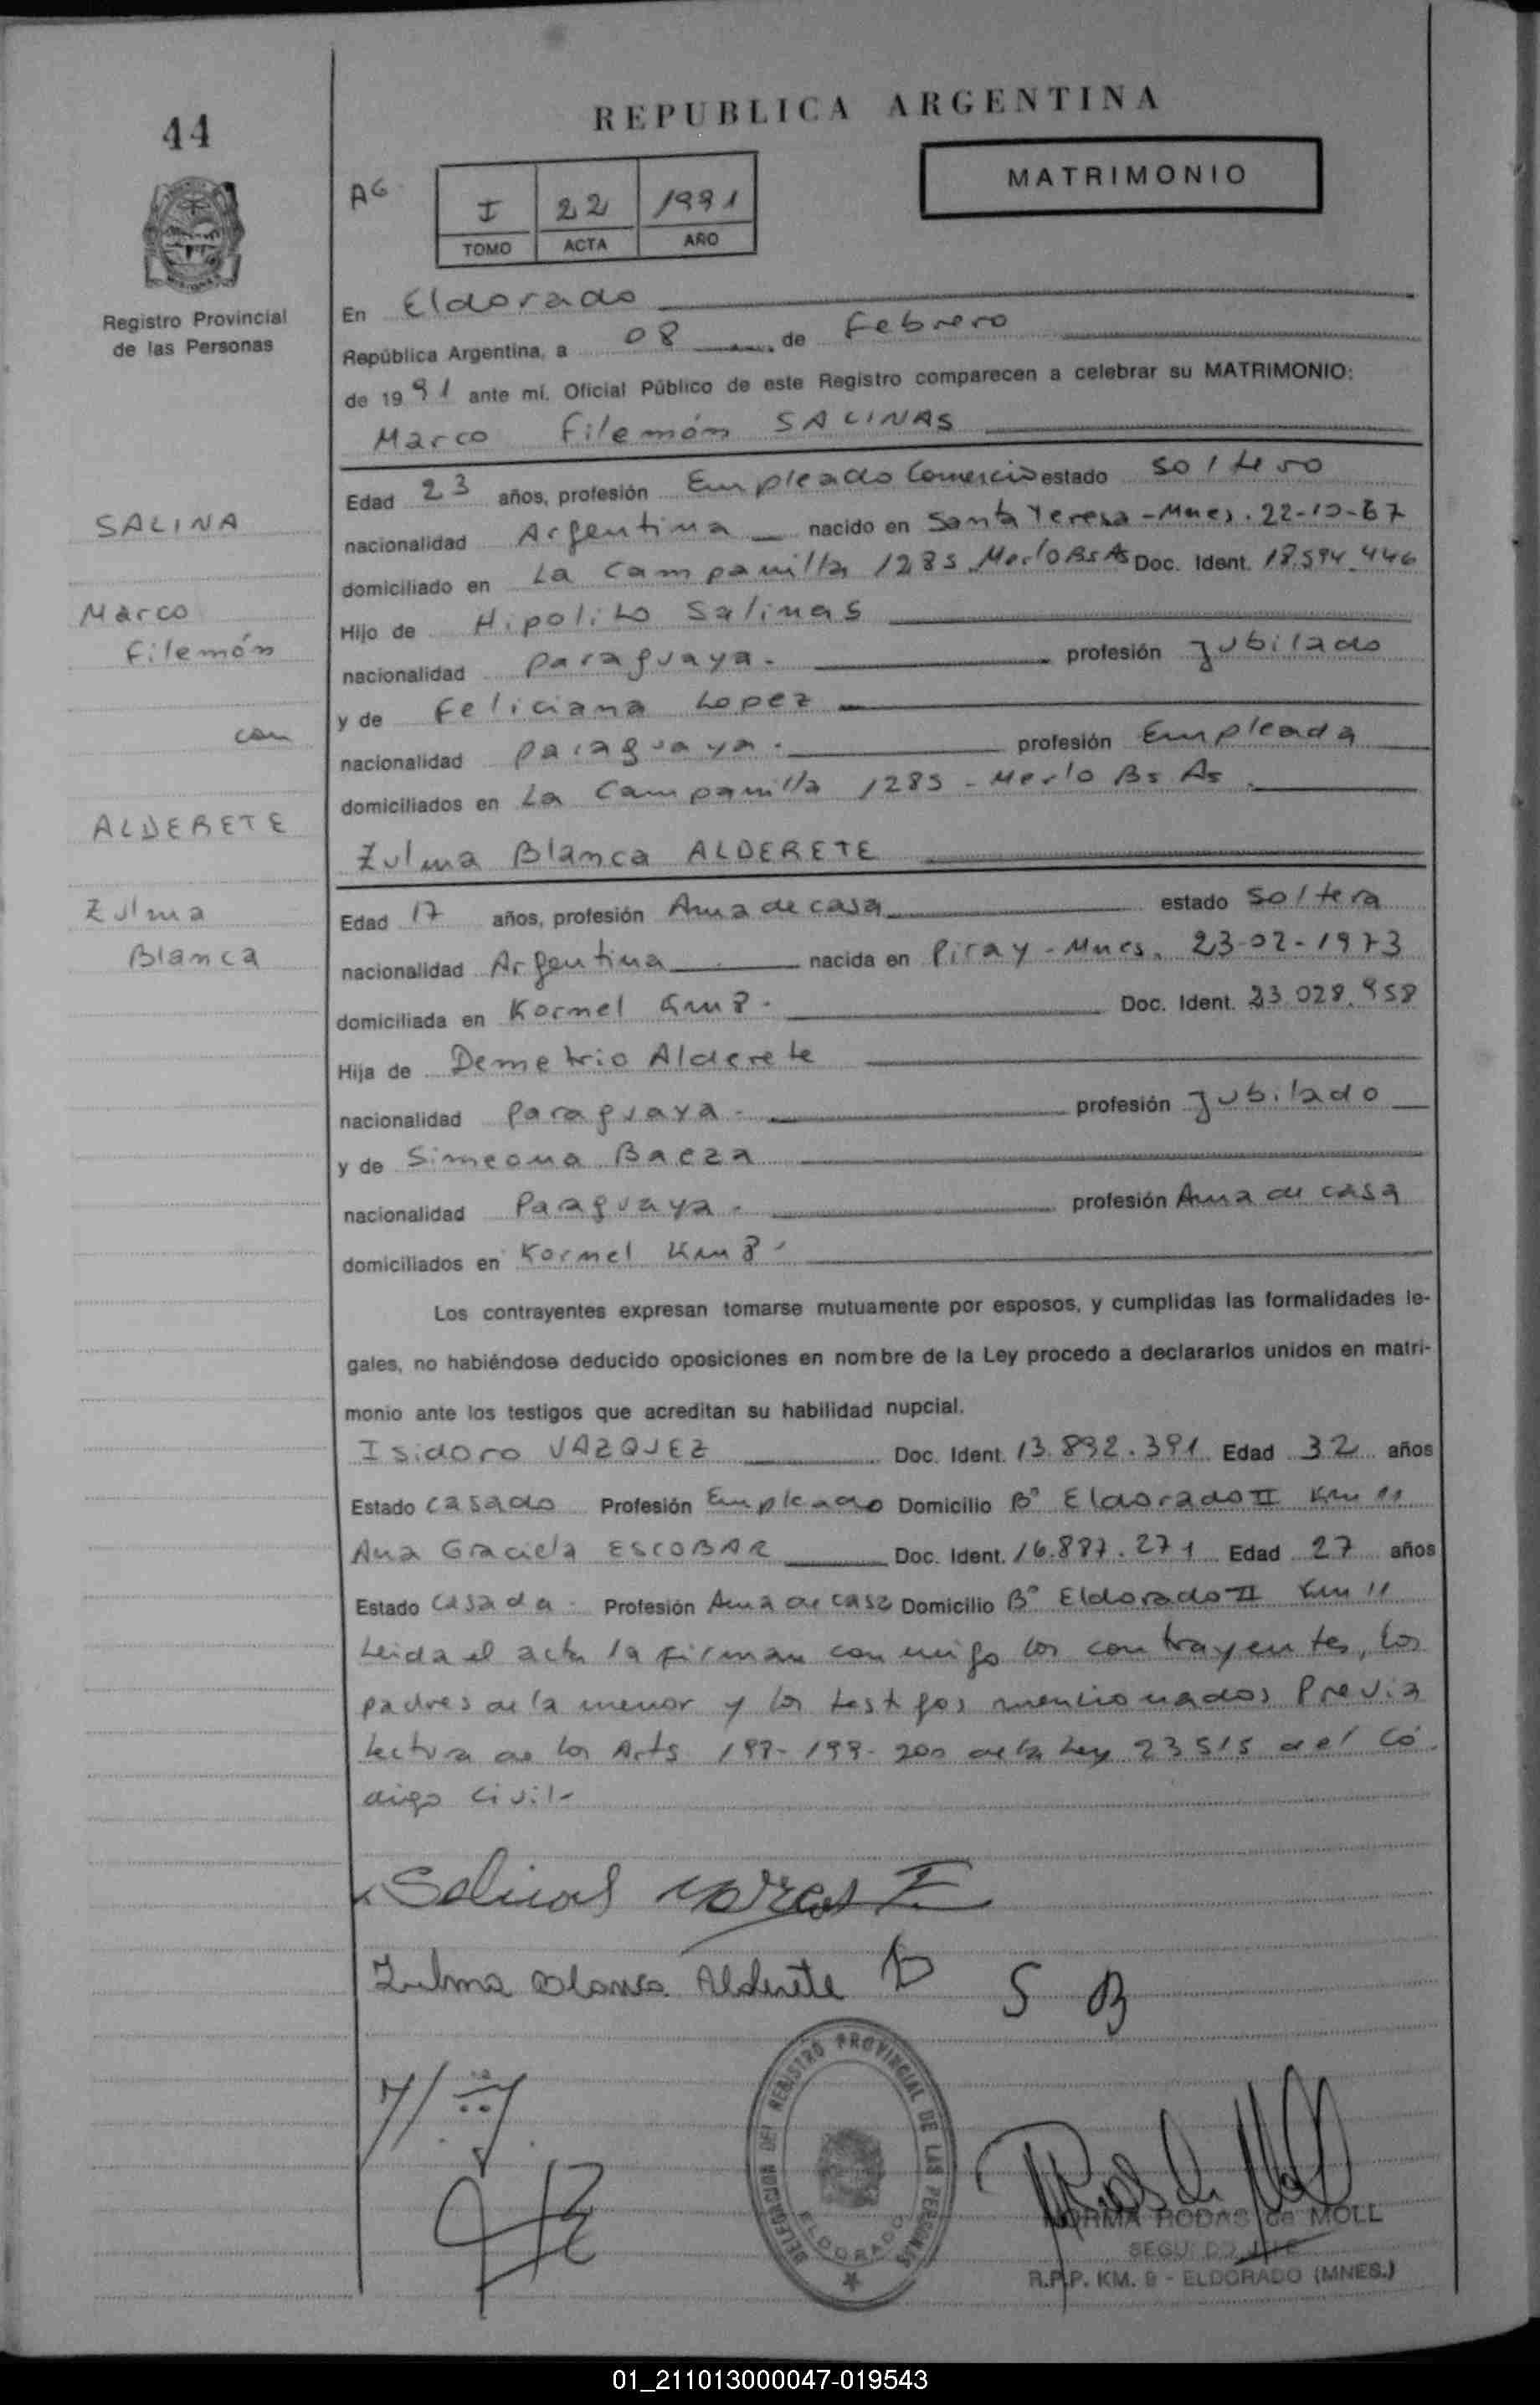 44
REPUBLICA ARGENTINA
MATRIMONIO
AG
I 22 1991
TOMO ACTA AÑO
Registro Provincial
de las Personas
En Eldorado
República Argentina, a 08 de Febrero
de 1991 ante mí, Oficial Público de este Registro comparecen a celebrar su MATRIMONIO:
Marco Filemón SALINAS
Edad 23 años, profesión Empleado Comercio estado soltero
SALINA
nacionalidad Argentina nacido en Santa Teresa - Mnes. 22-10-67
domiciliado en La Campanilla 1285 Merlo Bs As Doc. Ident. 18.594.446
Marco
Hijo de Hipolito Salinas
Filemón
nacionalidad paraguaya. profesión Jubilado
y de Feliciana Lopez
con
nacionalidad paraguaya. profesión Empleada
domiciliados en La Campanilla 1285 - Merlo Bs As.
ALDERETE
Zulma Blanca ALDERETE
Zulma
Edad 17 años, profesión Ama de casa estado soltera
Blanca
nacionalidad Argentina nacida en Piray - Mnes. 23-02-1973
domiciliada en Kornel Km 8. Doc. Ident. 23.028.958
Hija de Demetrio Alderete
nacionalidad Paraguaya - profesión Jubilado
y de Simeona Baeza
nacionalidad Paraguaya. profesión Ama de casa
domiciliados en Kornel Km 8.
Los contrayentes expresan tomarse mutuamente por esposos, y cumplidas las formalidades le-
gales, no habiéndose deducido oposiciones en nombre de la Ley procedo a declararlos unidos en matri-
monio ante los testigos que acreditan su habilidad nupcial.
Isidoro VAZQUEZ Doc. Ident. 13.892.391 Edad 32 años
Estado casado Profesión Empleado Domicilio B° Eldorado II Km 11
Ana Graciela ESCOBAR Doc. Ident. 16.887.271 Edad 27 años
Estado casada. Profesión Ama de casa Domicilio B° Eldorado II Km 11
Leida el acta la firman conmigo los contrayentes, los
padres de la menor y los testigos mencionados Previa
lectura de los Arts 198-199-200 de la Ley 23515 del Có
digo Civil-
Salinas Marcos F
Zulma Blanca Alderete D S B
DELEGACION DEL REGISTRO PROVINCIAL DE LAS PERSONAS
ELDORADO
NORMA RODAS de MOLL
SEGUNDO JEFE
R.P.P. KM. 9 - ELDORADO (MNES.)
01_211013000047-019543